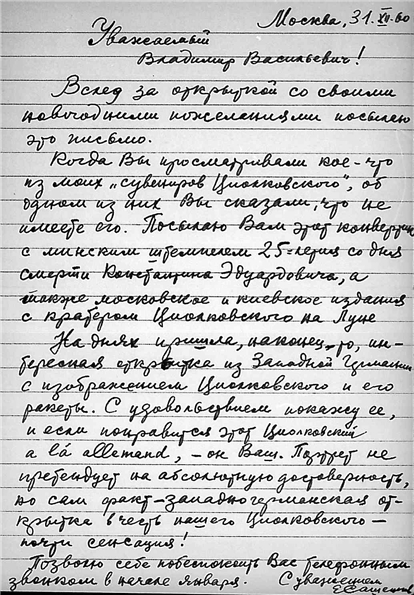 Москва, 31.XII.60
Уважаемый
Владимир Васильевич!
Вслед за открыткой со своими
новогодними пожеланиями посылаю
это письмо.
Когда Вы просматривали кое-что
из моих „сувениров Циолковского", об
одном из них Вы сказали, что не
имеете его. Посылаю Вам этот конвертик
с минским штемпелем 25-летия со дня
смерти Константина Эдуардовича, а
также московское и киевское издания
с кратером Циолковского на Луне
На днях пришла, наконец-то, ин-
тересная открытка из Западной Германии
с изображением Циолковского и его
ракеты. С удовольствием покажу ее,
и если понравится этот Циолковский
a lá allemand, – он Ваш. Портрет не
претендует на абсолютную достоверность,
но сам факт – западногерманская от-
крытка в честь нашего Циолковского –
почти сенсация!
Позволю себе побеспокоить Вас телефонным
звонком в начале января. С уважением